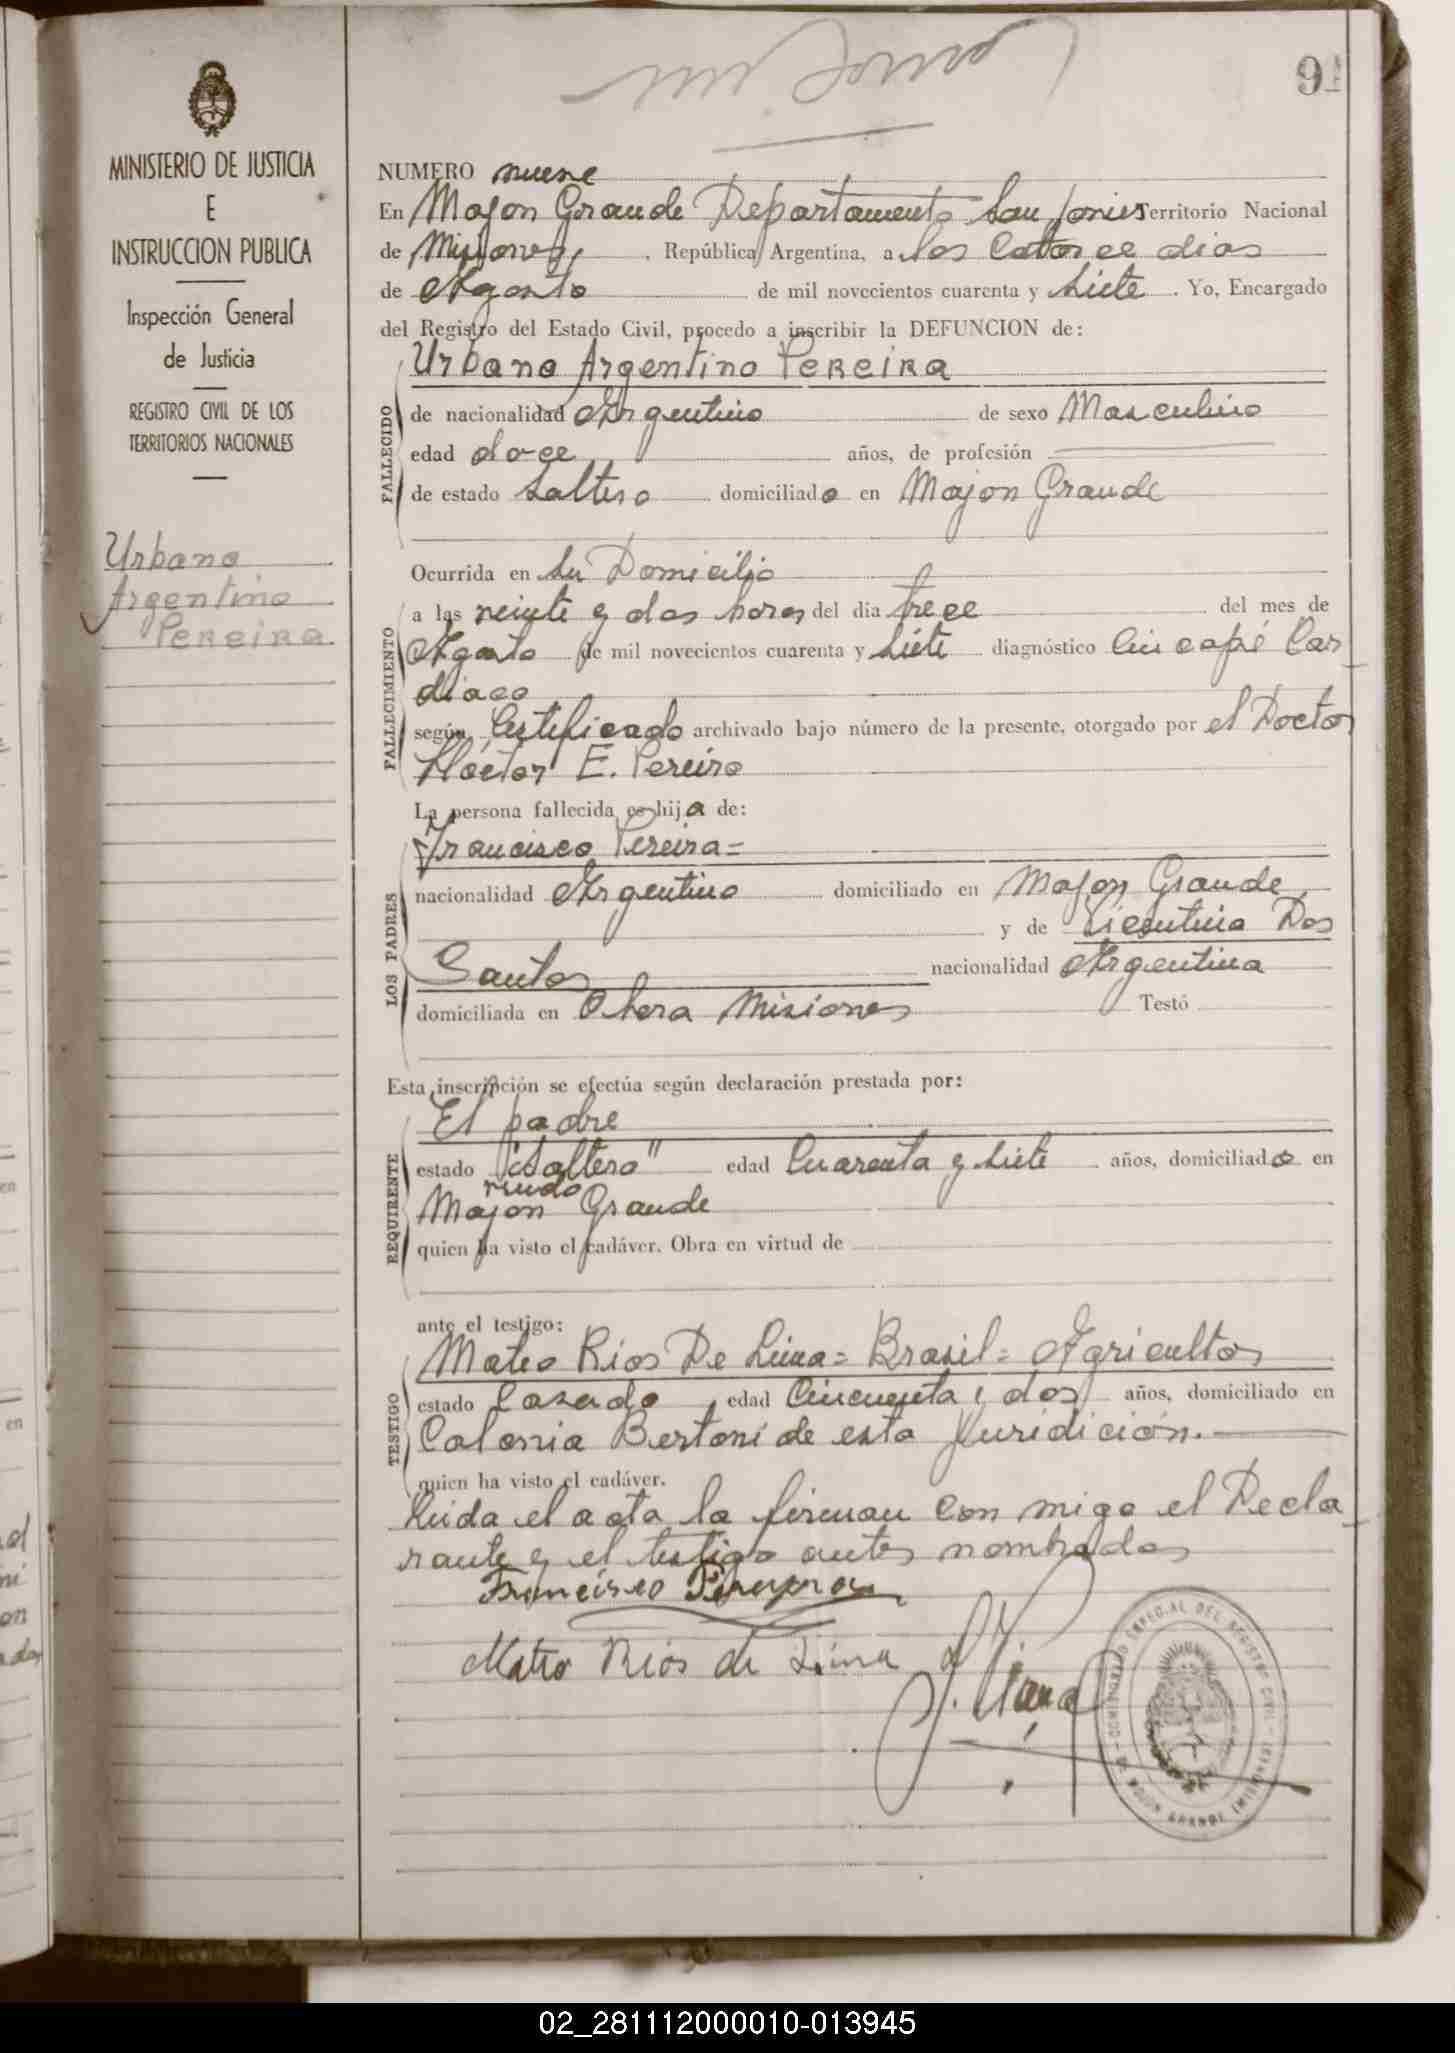 91
MINISTERIO DE JUSTICIA
E
INSTRUCCION PUBLICA
Inspección General
de Justicia
REGISTRO CIVIL DE LOS
TERRITORIOS NACIONALES
Urbano
Argentino
Pereira
NUMERO nueve
En Mojon Grande Departamento San Javier Territorio Nacional
de Misiones, . República Argentina, a los Catorce dias
de Agosto de mil novecientos cuarenta y siete . Yo, Encargado
del Registro del Estado Civil, procedo a inscribir la DEFUNCION de:
Urbano Argentino Pereira
FALLECIDO
de nacionalidad Argentino de sexo Masculino
edad doce años, de profesión
de estado Soltero domiciliado en Mojon Grande
Ocurrida en su Domicilio
FALLECIMIENTO
a las veinte y dos horas del dia trece del mes de
Agosto de mil novecientos cuarenta y siete diagnóstico Cincopé Car-
diaco
según Certificado archivado bajo número de la presente, otorgado por el Doctor
Hoctor E. Pereira
La persona fallecida es hijo de:
LOS PADRES
Francisco Pereira=
nacionalidad Argentino domiciliado en Mojon Grande,
y de Vicentina Dos
Santos nacionalidad Argentina
domiciliada en Obera Misiones Testó
Esta inscripción se efectúa según declaración prestada por:
REQUIRENTE
El padre
estado "Soltero" edad Cuarenta y siete años, domiciliado en
viudo
Mojon Grande
quien ha visto el cadáver. Obra en virtud de
ante el testigo:
TESTIGO
Mateo Rios De Lima= Brasil= Agricultor
estado Casado, edad Cincuenta y dos años, domiciliado en
Colonia Bertoni de esta Juridición.
quien ha visto el cadáver.
Leida el acta la firman con migo el Decla-
rante y el testigo antes nombrados
Francisco Pereyra
Mateo Rios de Lima
COMISIONADO ESPECIAL DEL REGISTRO CIVIL - DE MOJON GRANDE (MISIONES)
02_281112000010-013945